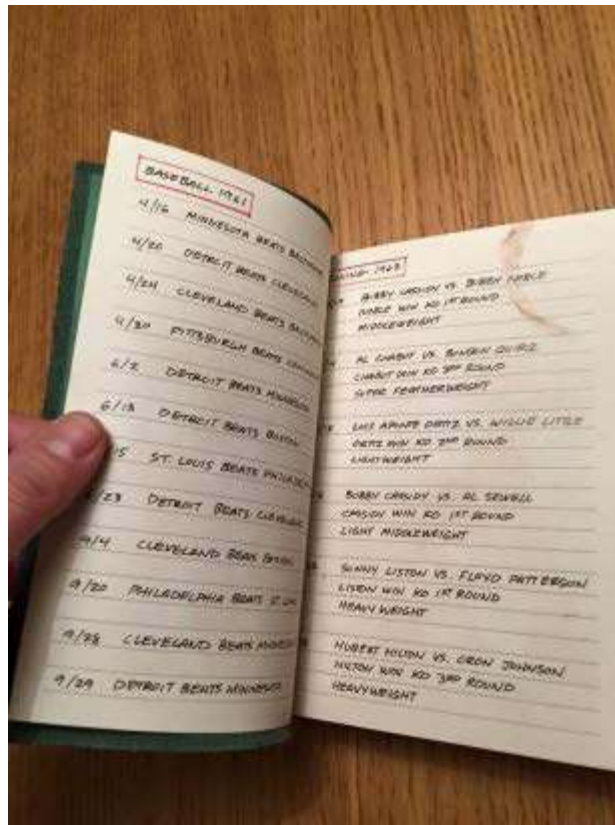 BASEBALL 1961
4/16 MINNESOTA BEATS
4/20 DETROIT BEATS CLEVELAND
4/24 CLEVELAND BEATS
4/30 PITTSBURGH BEATS
6/2 DETROIT BEATS MINNESOTA
6/13 DETROIT BEATS BOSTON
15 ST. LOUIS BEATS PHILADELPHIA
23 DETROIT BEATS CLEVELAND
9/4 CLEVELAND BEATS BOSTON
9/20 PHILADELPHIA BEATS ST. LOUIS
9/28 CLEVELAND BEATS MINNESOTA
9/29 DETROIT BEATS MINNESOTA
1963
BOBBY CASSIDY VS. BOBBY NOBLE
NOBLE WIN KO 1ST ROUND
MIDDLEWEIGHT
AL CHABUT VS.
CHABUT WIN KO 3RD ROUND
SUPER FEATHERWEIGHT
LUIS APONTE ORTIZ VS. WILLIE LITTLE
ORTIZ WIN KO 2ND ROUND
LIGHTWEIGHT
BOBBY CASSIDY VS. AL SEWELL
CASSIDY WIN KO 1ST ROUND
LIGHT MIDDLEWEIGHT
SONNY LISTON VS. FLOYD PATTERSON
LISTON WIN KO 1ST ROUND
HEAVYWEIGHT
HUBERT HILTON VS. JOHNSON
HILTON WIN KO 3RD ROUND
HEAVYWEIGHT